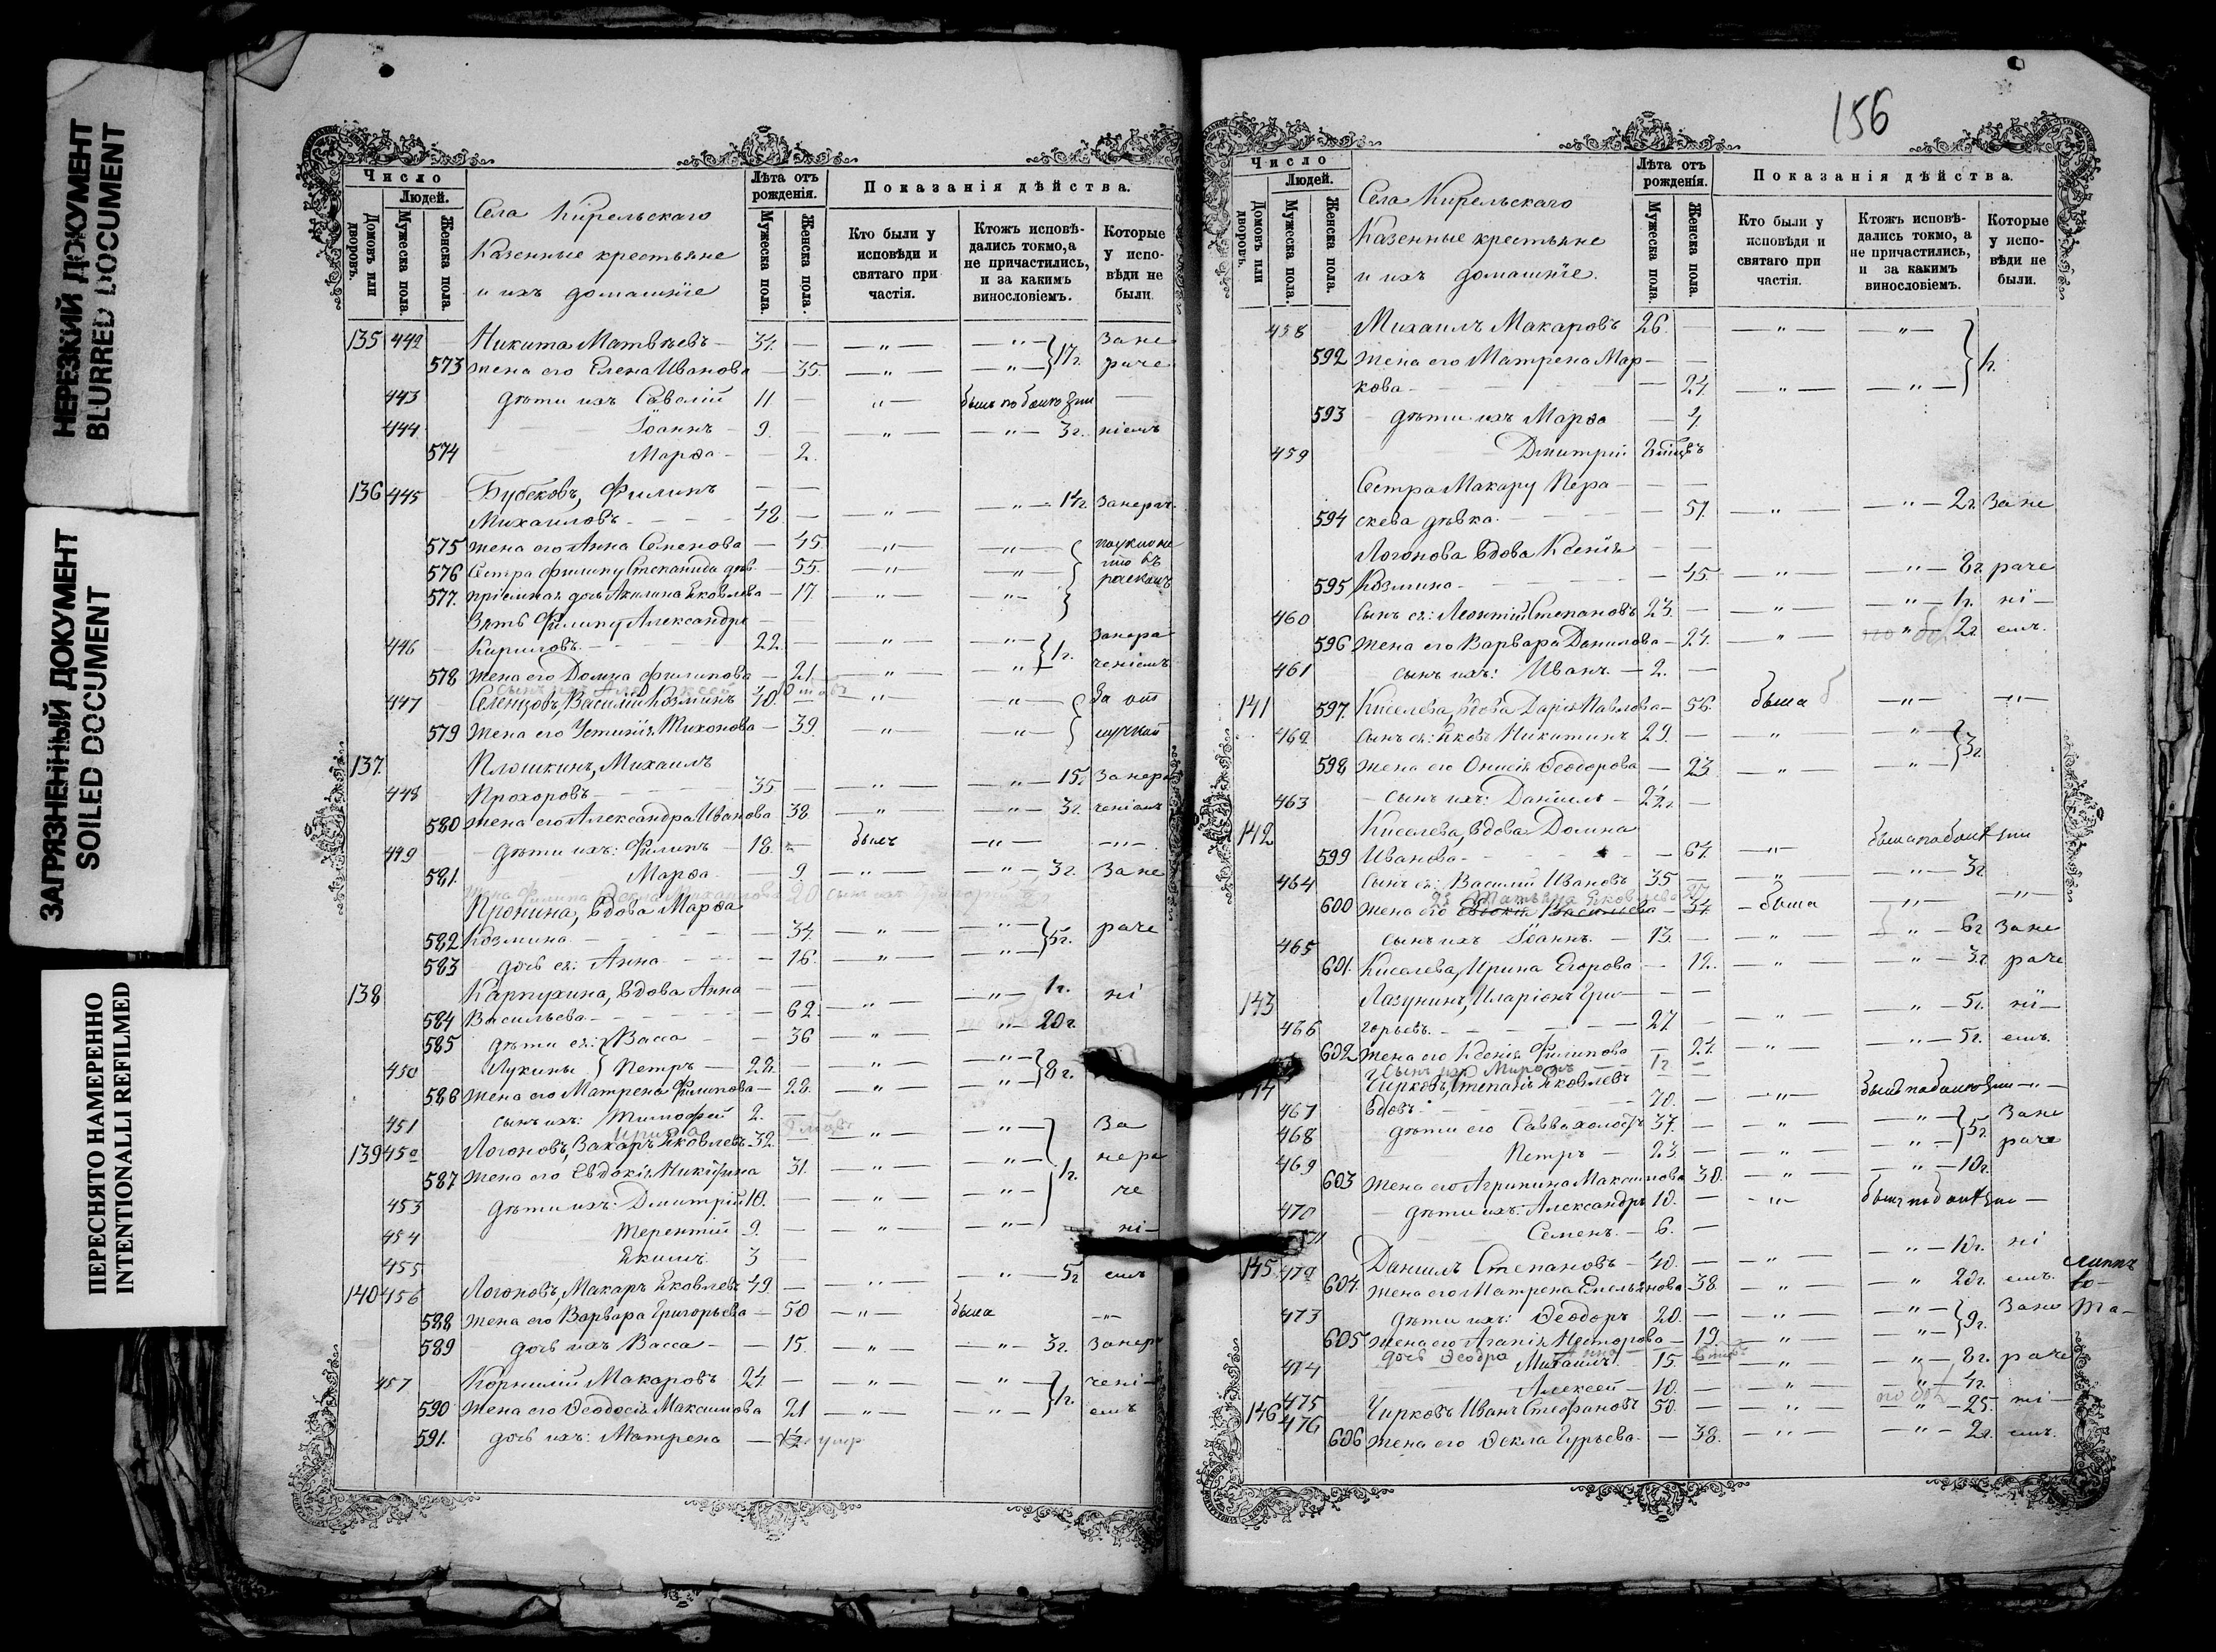 НЕРЕЗКИЙ ДОКУМЕНТ
BLURRED DOCUMENT
ЗАГРЯЗНЕННЫЙ ДОКУМЕНТ
SOILED DOCUMENT
ПЕРЕСНЯТО НАМЕРЕННО
INTENTIONALLI REFILMED
Число
Людей.
Домовъ или дворовъ.
Мужеска пола.
Женска пола.
Села Кирельскаго
Казенные крестьяне
и ихъ домашніе
Лѣта отъ рожденія.
Мужеска пола.
Женска пола.
Показанія дѣйства.
Кто были у исповѣди и святаго при частія.
Ктожъ исповѣ-дались токмо, а не причастились, и за какимъ винословіемъ.
Которые у испо-вѣди не были.
135 442 Никита Матвѣевъ 34. — — " — — " — 17г. Зане
573 жена его Елена Иванова — 35. — " — — " — раче
443 дѣти ихъ Савелій 11 — — " —
444 Іоаннъ 9. — — " — — " — 3г. ніемъ
574 Марѳа — 2.
136 445 Бубековъ, Филипъ — —
Михаиловъ 48. — — " — — " —
575 жена его Анна Семенова — 45. — " — — " —
576 Сестра Филипу Степанида — 55. — " — — " —
577. пріемная дочь Акилина Яковлева — 17 — " — — " —
Зять Филипу Александръ —
446 Кириловъ 22. — " — — " — 1г. Занера
578 жена его Домна Филипова — 21 — " — — " — ченіемъ
447 Селенцовъ, Василій Козминъ 40. — — " — — " — За от
579 Жена его Устинія Тихонова — 39. — " — — " — лучкой
137. Плошкинъ, Михаилъ
448 Прохоровъ 35 — " — — " — 15г. Занера
580 жена его Александра Иванова 38. — " — — " — 3г. ченіемъ
449 дѣти ихъ: Филипъ 18. — былъ — " — — " —
581. Марѳа — 9. — " — — " — 3г. Зане
Пронина, вдова Марѳа
582 Козмина — 34. — " — — " — 5г. раче
583 дочь ея: Анна — 16. — " — — " —
138 Карпухина, вдова Анна — — — " — 1г. ні
584 Васильева — 62. — " —
585 дѣти ея: Васса — 36 — " — — " — 20г.
450 Лукины Петръ 28. — — " — — " — 8г.
586 жена его Матрена Филипова — 28. — " — — " —
451 сынъ ихъ: Тимофей 2. —
139 452 Логоновъ, Захаръ Яковлевъ 32. — — " — — " — За
587 жена его Евдокія Никитина 31. — " — — " — 1г. нера
453 дѣти ихъ: Димитрій 10. — — " — — " — че
454 Терентій 9. — — " — — " — ні—
455 Якимъ 3 —
140 456 Логоновъ, Макаръ Яковлевъ 49. — — " — — " — 5г емъ
588 жена его Варвара Григорьева — 50 — " — была — " —
589 дочь ихъ Васса — 15. — " — — " — 3г. Занера
457 Корнилій Макаровъ 24 — — " — — " — 1г. чені—
590 жена его Ѳеодосія Максимова 21 — " — — " — емъ
591. дочь ихъ: Матрена — ½ умр
156
Число
Людей.
Домовъ или дворовъ.
Мужеска пола.
Женска пола.
Села Кирельскаго
Казенные крестьяне
и ихъ домашніе.
Лѣта отъ рожденія.
Мужеска пола.
Женска пола.
Показанія дѣйства.
Кто были у исповѣди и святаго при частія.
Ктожъ исповѣ-дались токмо, а не причастились, и за какимъ винословіемъ.
Которые у испо-вѣди не были.
458 Михаилъ Макаровъ 26. — — " — — " — 1г.
592 жена его Матрена Мар— —
кова — 24. — " — — " —
593 дѣти ихъ Марѳа — 4.
459 Димитрій
Сестра Макару Пера— — —
594 скева дѣвка — 51. — " — — " — 2г. Зане
Логонова вдова Ксенія — —
595 Козмина — 45. — " — — " — 8г. раче
460 Сынъ ея: Леонтій Степановъ 23. — — " — — " — 1г. ні—
596 жена его Варвара Данилова — 24. — " — — " — 2г. емъ.
461 сынъ ихъ: Иванъ 2. —
141 597. Киселева, вдова Дарія Павлова — 56. была — " — — " —
462 Сынъ ея: Яковъ Никитинъ 29. — — " — — " — 3г.
598 жена его Онисія Ѳеодорова — 23 — " — — " —
463 сынъ ихъ: Даніилъ
142 Киселева, вдова Домна
599 Иванова — 67. — " —
464 Сынъ ея: Василій Ивановъ 35 — — " — — " — 3г.
600 жена его 2я Татьяна Яковлева — была — " — — " —
465 сынъ ихъ Іоаннъ 13. — — " — — " — 6г Зане
601. Киселева, Ирина Егорова — 12. — " — — " — 3г. раче
143 Лазунинъ, Иларіонъ Гри— — —
466 горьевъ 27 — — " — — " — 5г. ні—
602 жена его Ксенія Филипова — 24. — " — — " — 5г. емъ.
Сынъ ихъ Миронъ 1г. —
Чирковъ, Степанъ Яковлевъ
467 вдовъ 70. — — " —
468 дѣти его Савва 37. — — " — — " — 5г. Зане
469 Петръ 23. — — " — — " — раче
603 жена его Агрипина Максимова 30. — " — — " — 10г.
470 дѣти ихъ: Александръ 10. — — " —
Семенъ 6. —
145 472 Даніилъ Степановъ 40. — — " — — " — 10г. ні
604. жена его Матрена Емельянова 38. — " — — " — 20г. емъ.
473 дѣти ихъ: Ѳеодоръ 20. — — " — — " — 9г. Зане
605 жена его Агапія Несторова — 19. — " — — " —
дочь Ѳеодра Анна
474 Михаилъ 15. — — " — — " — 8г. раче
475 Алексей 10. — — " — — " — 4г.
146 476 Чирковъ Иванъ Стефановъ 50. — — " — — " — 25. ні—
606 жена его Ѳекла Гурьева — 38. — " — — " — 2г. емъ.